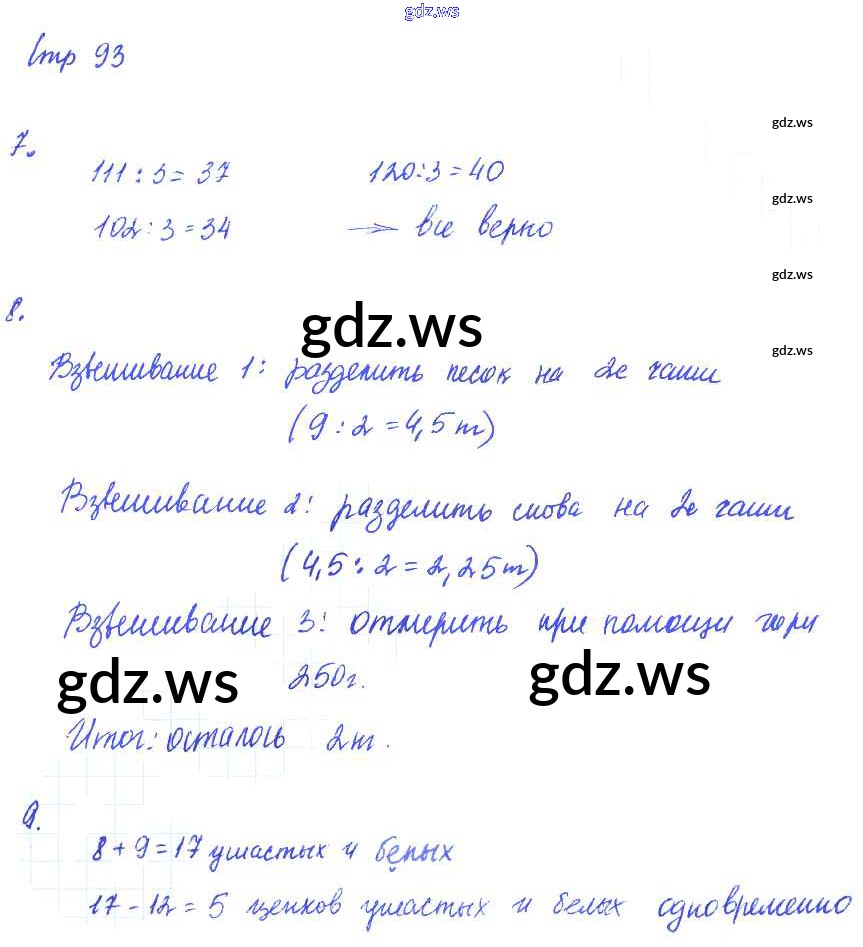 gdz.ws
Стр 93
gdz.ws
7.
111 : 3 = 37
120 : 3 = 40
gdz.ws
102 : 3 = 34
→ все верно
gdz.ws
8.
gdz.ws
gdz.ws
Взвешивание 1: разделить песок на 2е чаши
(9 : 2 = 4,5 т)
Взвешивание 2: разделить снова на 2е чаши
(4,5 : 2 = 2,25 т)
Взвешивание 3: отмерить при помощи гири
250 г.
gdz.ws
gdz.ws
Итог: осталось 2 кг.
9.
8 + 9 = 17 ушастых и белых
17 - 12 = 5 щенков ушастых и белых одновременно